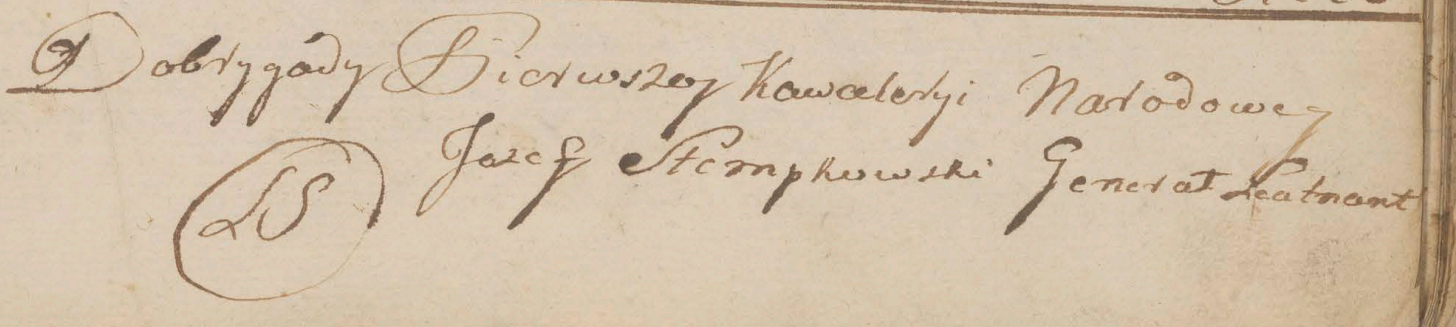 Do brygady Pierwszey Kawaleryi Narodowey
Jozef Stempkowski Generał Leatnant
LS